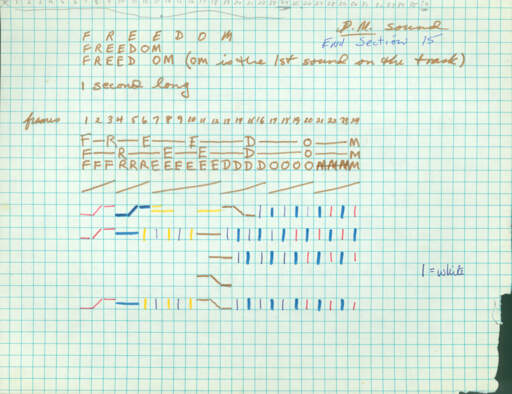 P.M. sound
F R E E D O M
End Section 15
FREEDOM
FREED OM (OM is the 1st sound on the track)
1 second long
frames 1 2 3 4 5 6 7 8 9 10 11 12 13 14 15 16 17 18 19 20 21 22 23 24
F—R—E—E—D—O—M
F—R—E—E—D—O—M
FFFRRREEEEEEDDDDOOOO
1 = white